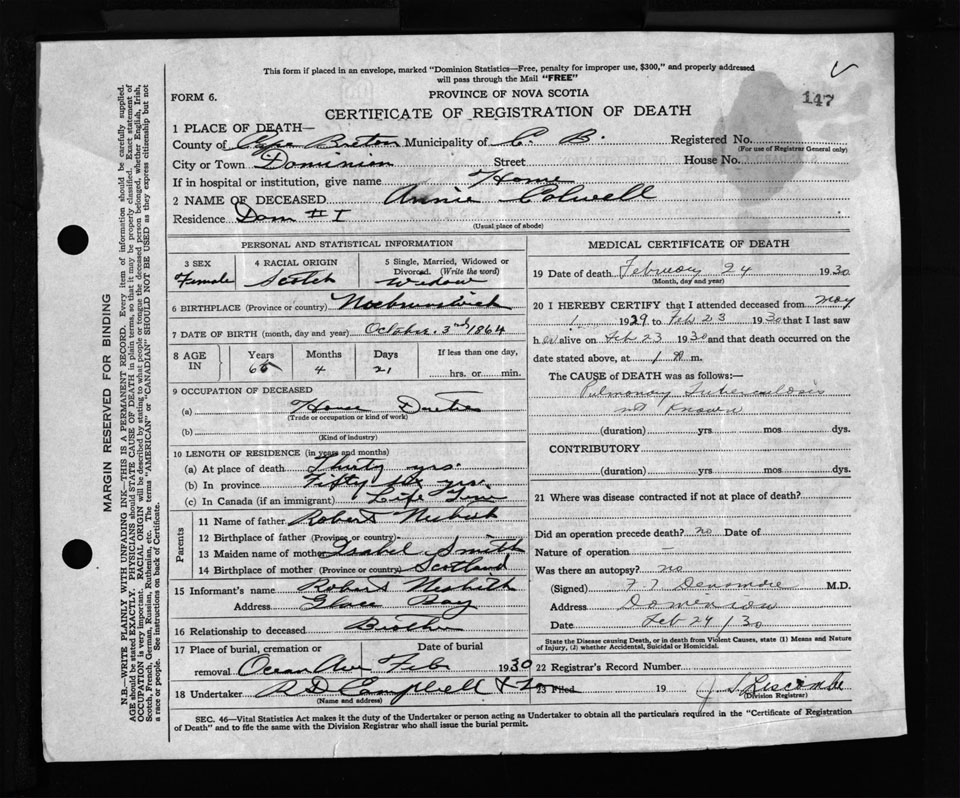 This form if placed in an envelope, marked "Dominion Statistics—Free, penalty for improper use, $300," and properly addressed
will pass through the Mail "FREE"
147
FORM 6.
PROVINCE OF NOVA SCOTIA
CERTIFICATE OF REGISTRATION OF DEATH
1 PLACE OF DEATH—
County of Cape Breton Municipality of C. B. Registered No.
(For use of Registrar General only)
City or Town Dominion Street House No.
If in hospital or institution, give name Home
2 NAME OF DECEASED Annie Colwell
Residence Dom # 1
(Usual place of abode)
PERSONAL AND STATISTICAL INFORMATION
3 SEX 4 RACIAL ORIGIN 5 Single, Married, Widowed or
Divorced. (Write the word)
Female Scotch Widow
6 BIRTHPLACE (Province or country)
7 DATE OF BIRTH (month, day and year) October 3rd 1864
8 AGE IN Years Months Days If less than one day,
65 4 21 hrs. or min.
9 OCCUPATION OF DECEASED
(a) House Duties
(Trade or occupation or kind of work)
(b)
(Kind of industry)
10 LENGTH OF RESIDENCE (in years and months)
(a) At place of death Thirty yrs.
(b) In province Fifty six yrs.
(c) In Canada (if an immigrant) Life Time
Parents
11 Name of father Robert
12 Birthplace of father (Province or country)
13 Maiden name of mother Isabel Smith
14 Birthplace of mother (Province or country) Scotland
15 Informant's name Robert Nesbith
Address Glace Bay
16 Relationship to deceased Brother
17 Place of burial, cremation or Date of burial
removal Ocean Ave Feb 1930
18 Undertaker A D Campbell &
(Name and address)
MEDICAL CERTIFICATE OF DEATH
19 Date of death February 24 1930
(Month, day and year)
20 I HEREBY CERTIFY that I attended deceased from May
1 1929 to Feb 23 1930 that I last saw
her alive on Feb 23 1930 and that death occurred on the
date stated above, at 1 m.
The CAUSE OF DEATH was as follows:—
Pulmonary Tuberculosis
not known
(duration) yrs mos dys.
CONTRIBUTORY
(duration) yrs mos dys.
21 Where was disease contracted if not at place of death?
Did an operation precede death? no Date of
Nature of operation —
Was there an autopsy? no
(Signed) M.D.
Address Dominion
Date Feb 24/30
State the Disease causing Death, or in death from Violent Causes, state (1) Means and Nature
of Injury, (2) whether Accidental, Suicidal or Homicidal.
22 Registrar's Record Number
23 Filed 19 J. S. Liscombe
(Division Registrar)
SEC. 46—Vital Statistics Act makes it the duty of the Undertaker or person acting as Undertaker to obtain all the particulars required in the "Certificate of Registration
of Death" and to file the same with the Division Registrar who shall issue the burial permit.
MARGIN RESERVED FOR BINDING
N.B.—WRITE PLAINLY WITH UNFADING INK—THIS IS A PERMANENT RECORD. Every item of information should be carefully supplied.
AGE should be stated EXACTLY. PHYSICIANS should STATE CAUSE OF DEATH in plain terms, so that it may be properly classified. Exact statement of
OCCUPATION is very important. RACIAL ORIGIN will be described by stating to what people or tongue the deceased person belonged, whether English, Irish,
Scotch, French, German, Russian, Ruthenian, etc. The terms "AMERICAN" or "CANADIAN" SHOULD NOT BE USED as they express citizenship but not
a race or people. See instructions on back of Certificate.